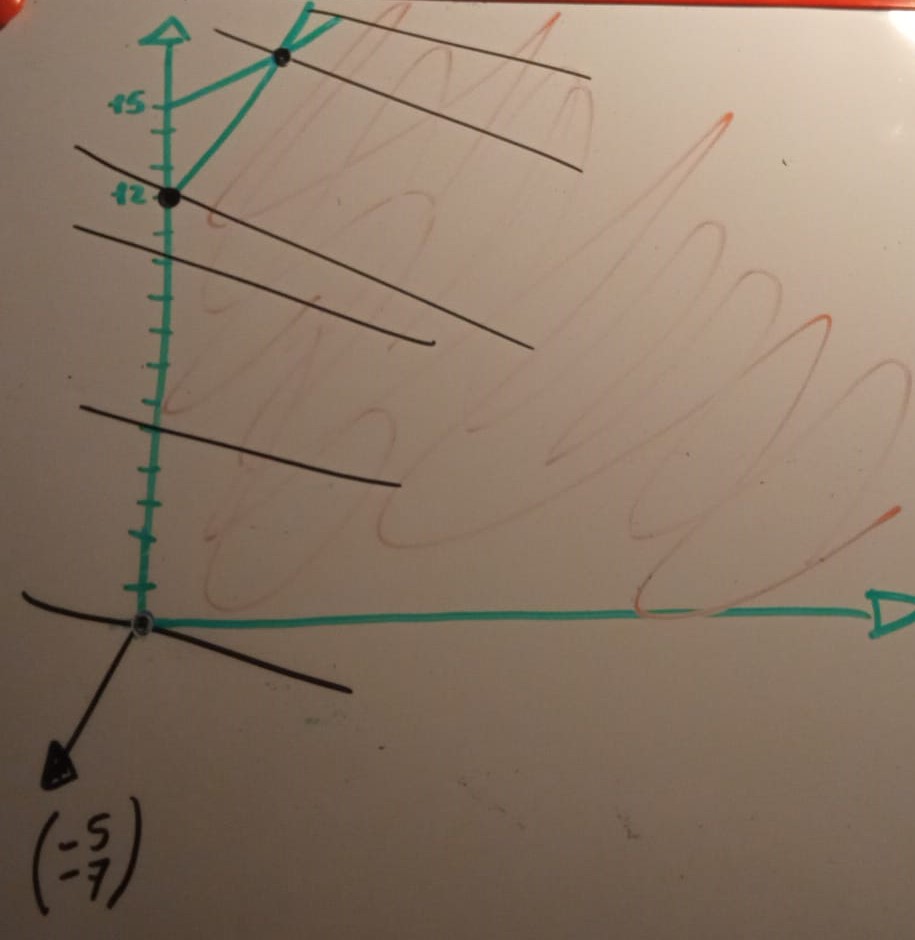 15
12
(-5
-7)